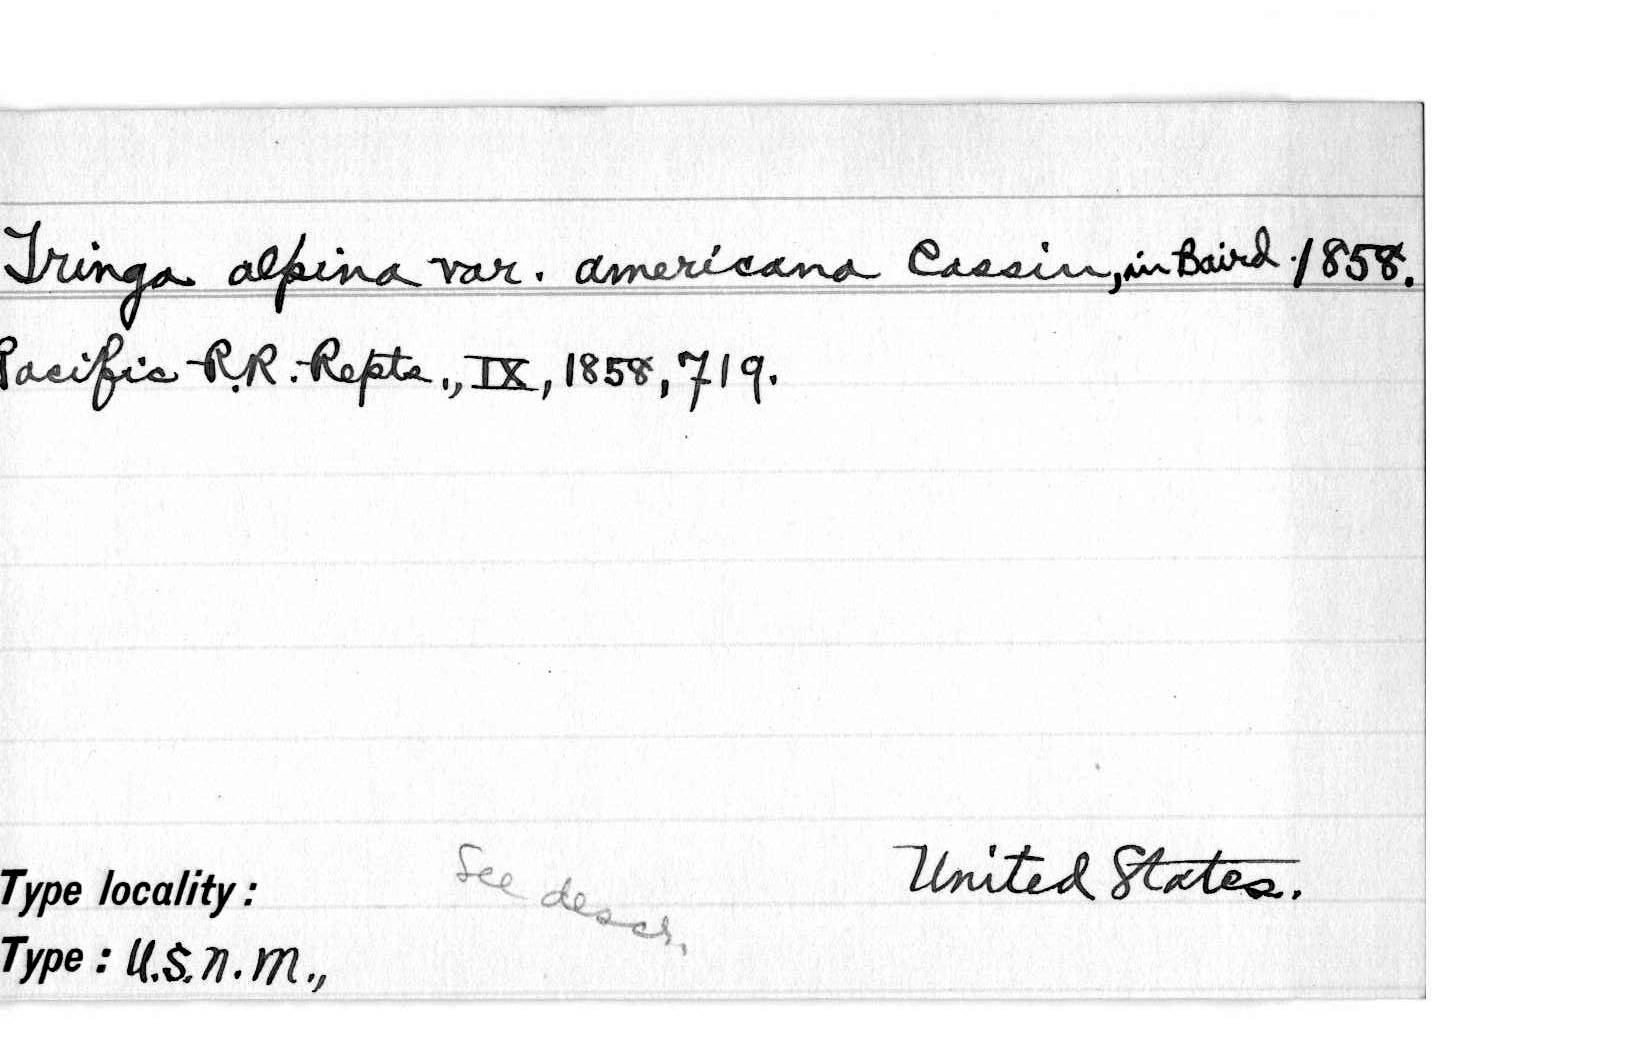 Tringa alpina var. americana Cassin, in Baird. 1858.
Pacific R.R. Repts., IX, 1858, 719.
Type locality: See descr. United States.
Type: U.S.N.M.,